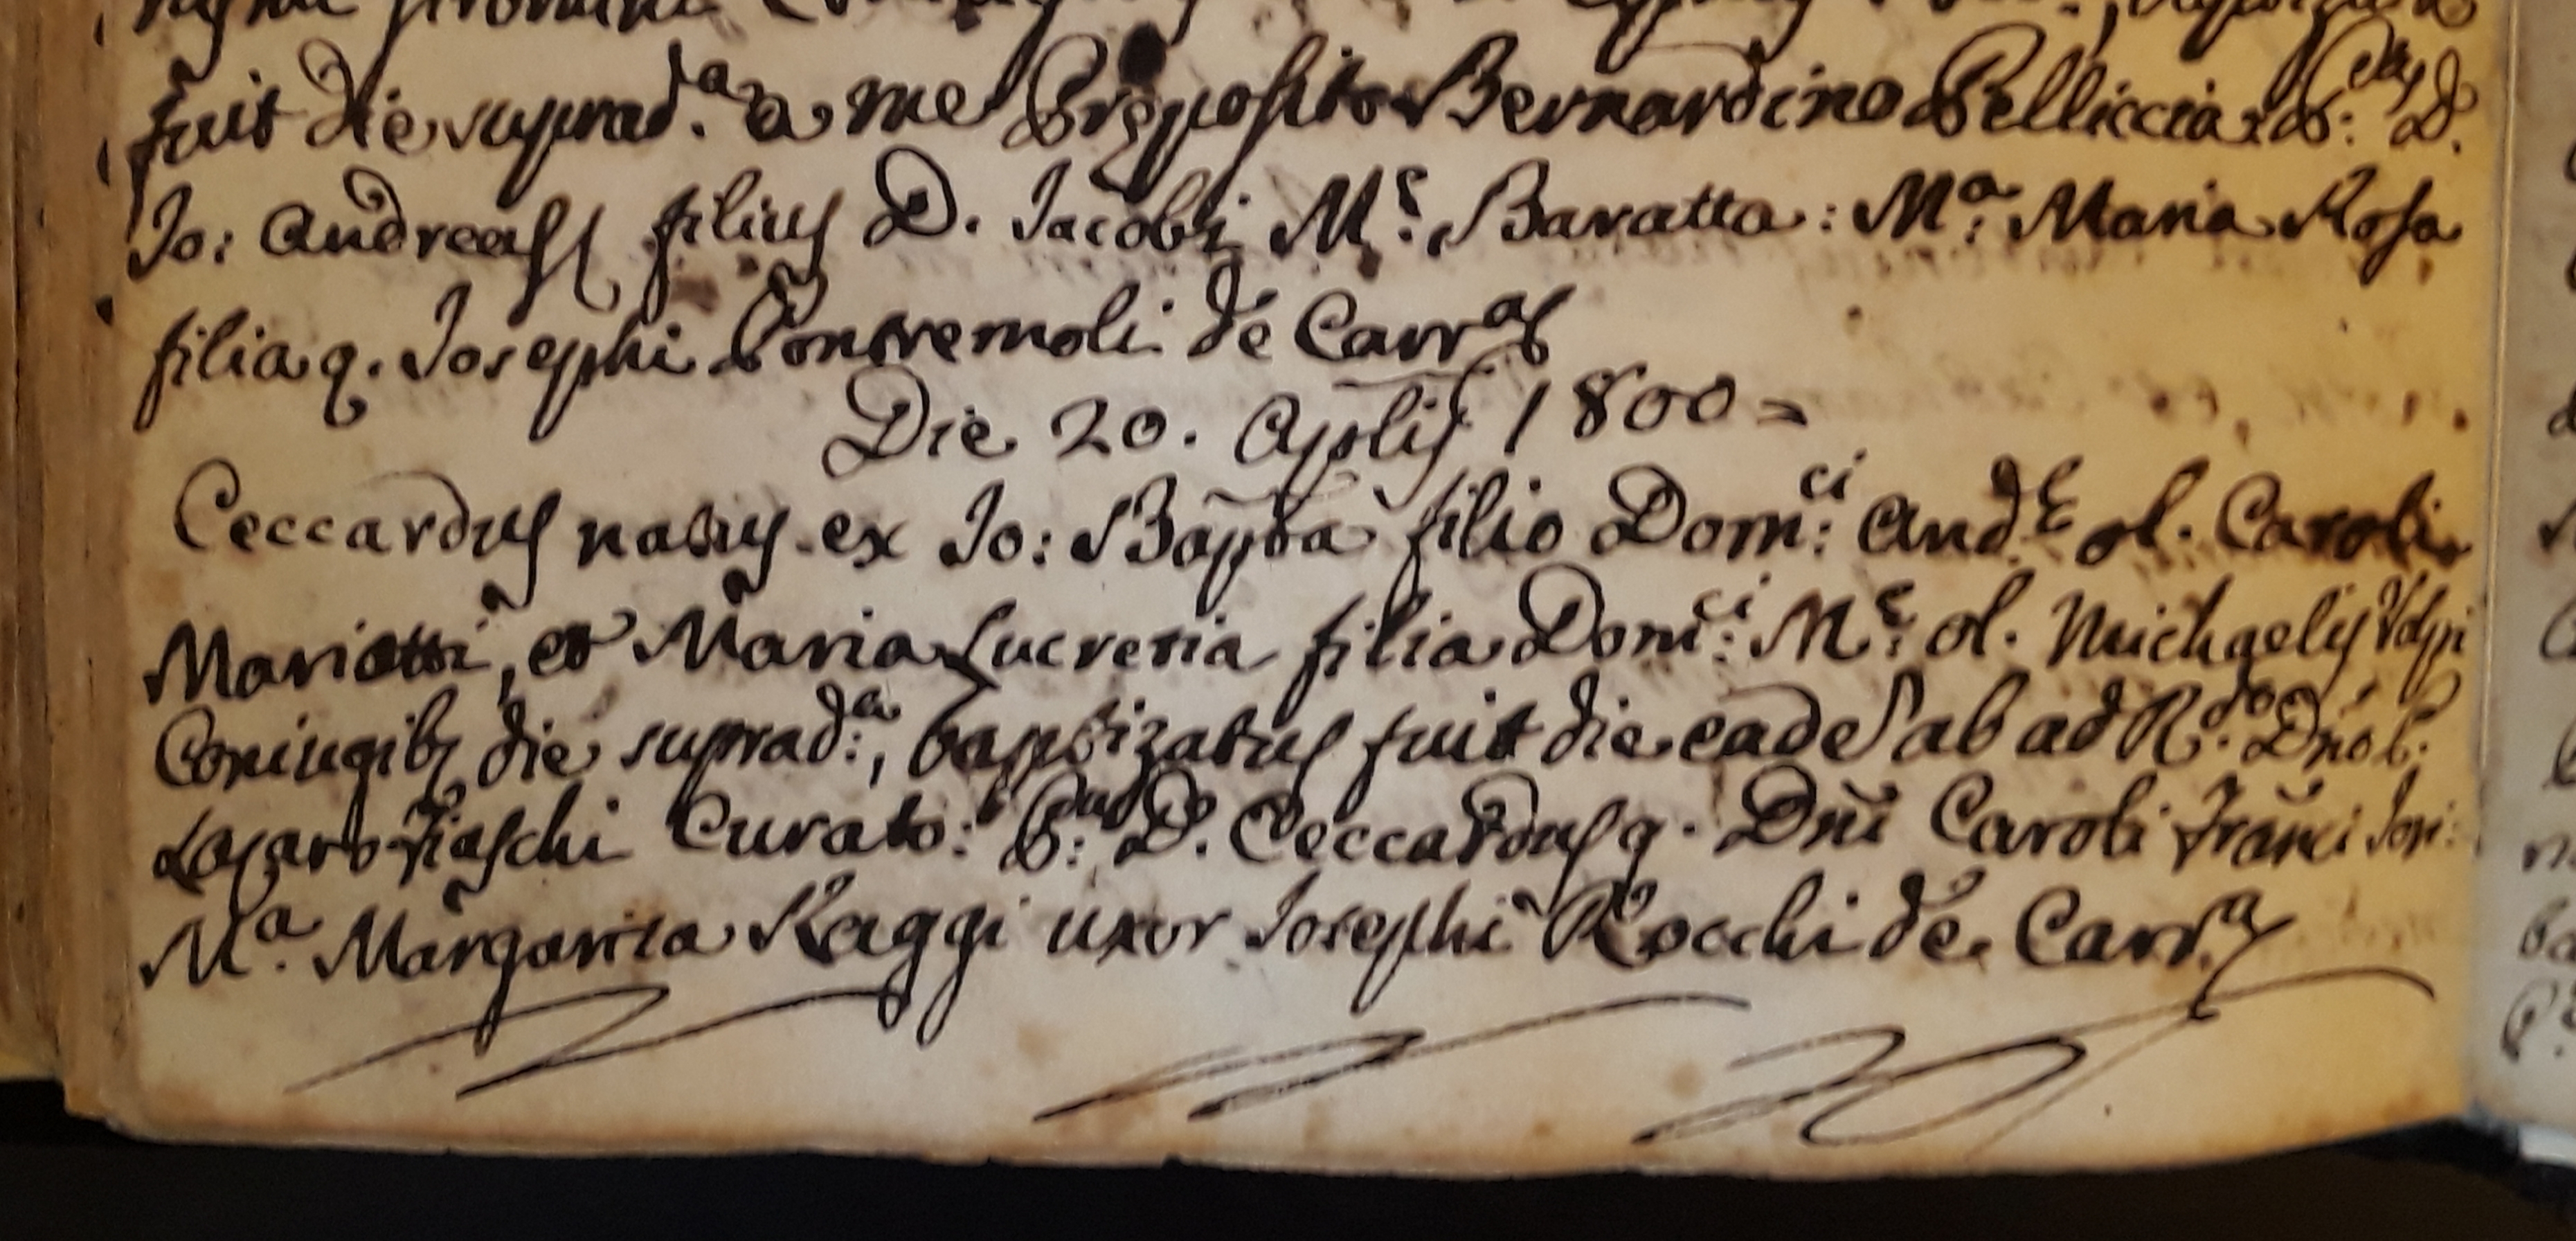 fuit die suprad.ª a me Preposito Bernardino Pelliccia: P: D.
Jo: Andreas filius D. Jacobi M.ͤ Baratta: M.ª Maria Rosa
filia q. Josephi Pontremoli de Carrª
Die 20. Aplis 1800 =
Ceccardus natus ex Jo: Bapta filio Dom:ci And.ͤ ol. Caroli
Mariotti, et Maria Lucretia filia Dom:ci M.ͤ ol. Michaelis Volpi
Coniugib9 die suprad:ª, baptizatus fuit die eade ab ad R.do Dno
Lazaro Fiaschi Curato: P: D. Ceccardus q. Dni Caroli Franci
M.ª Margarita Raggi uxor Josephi Rocchi de Carr.ª